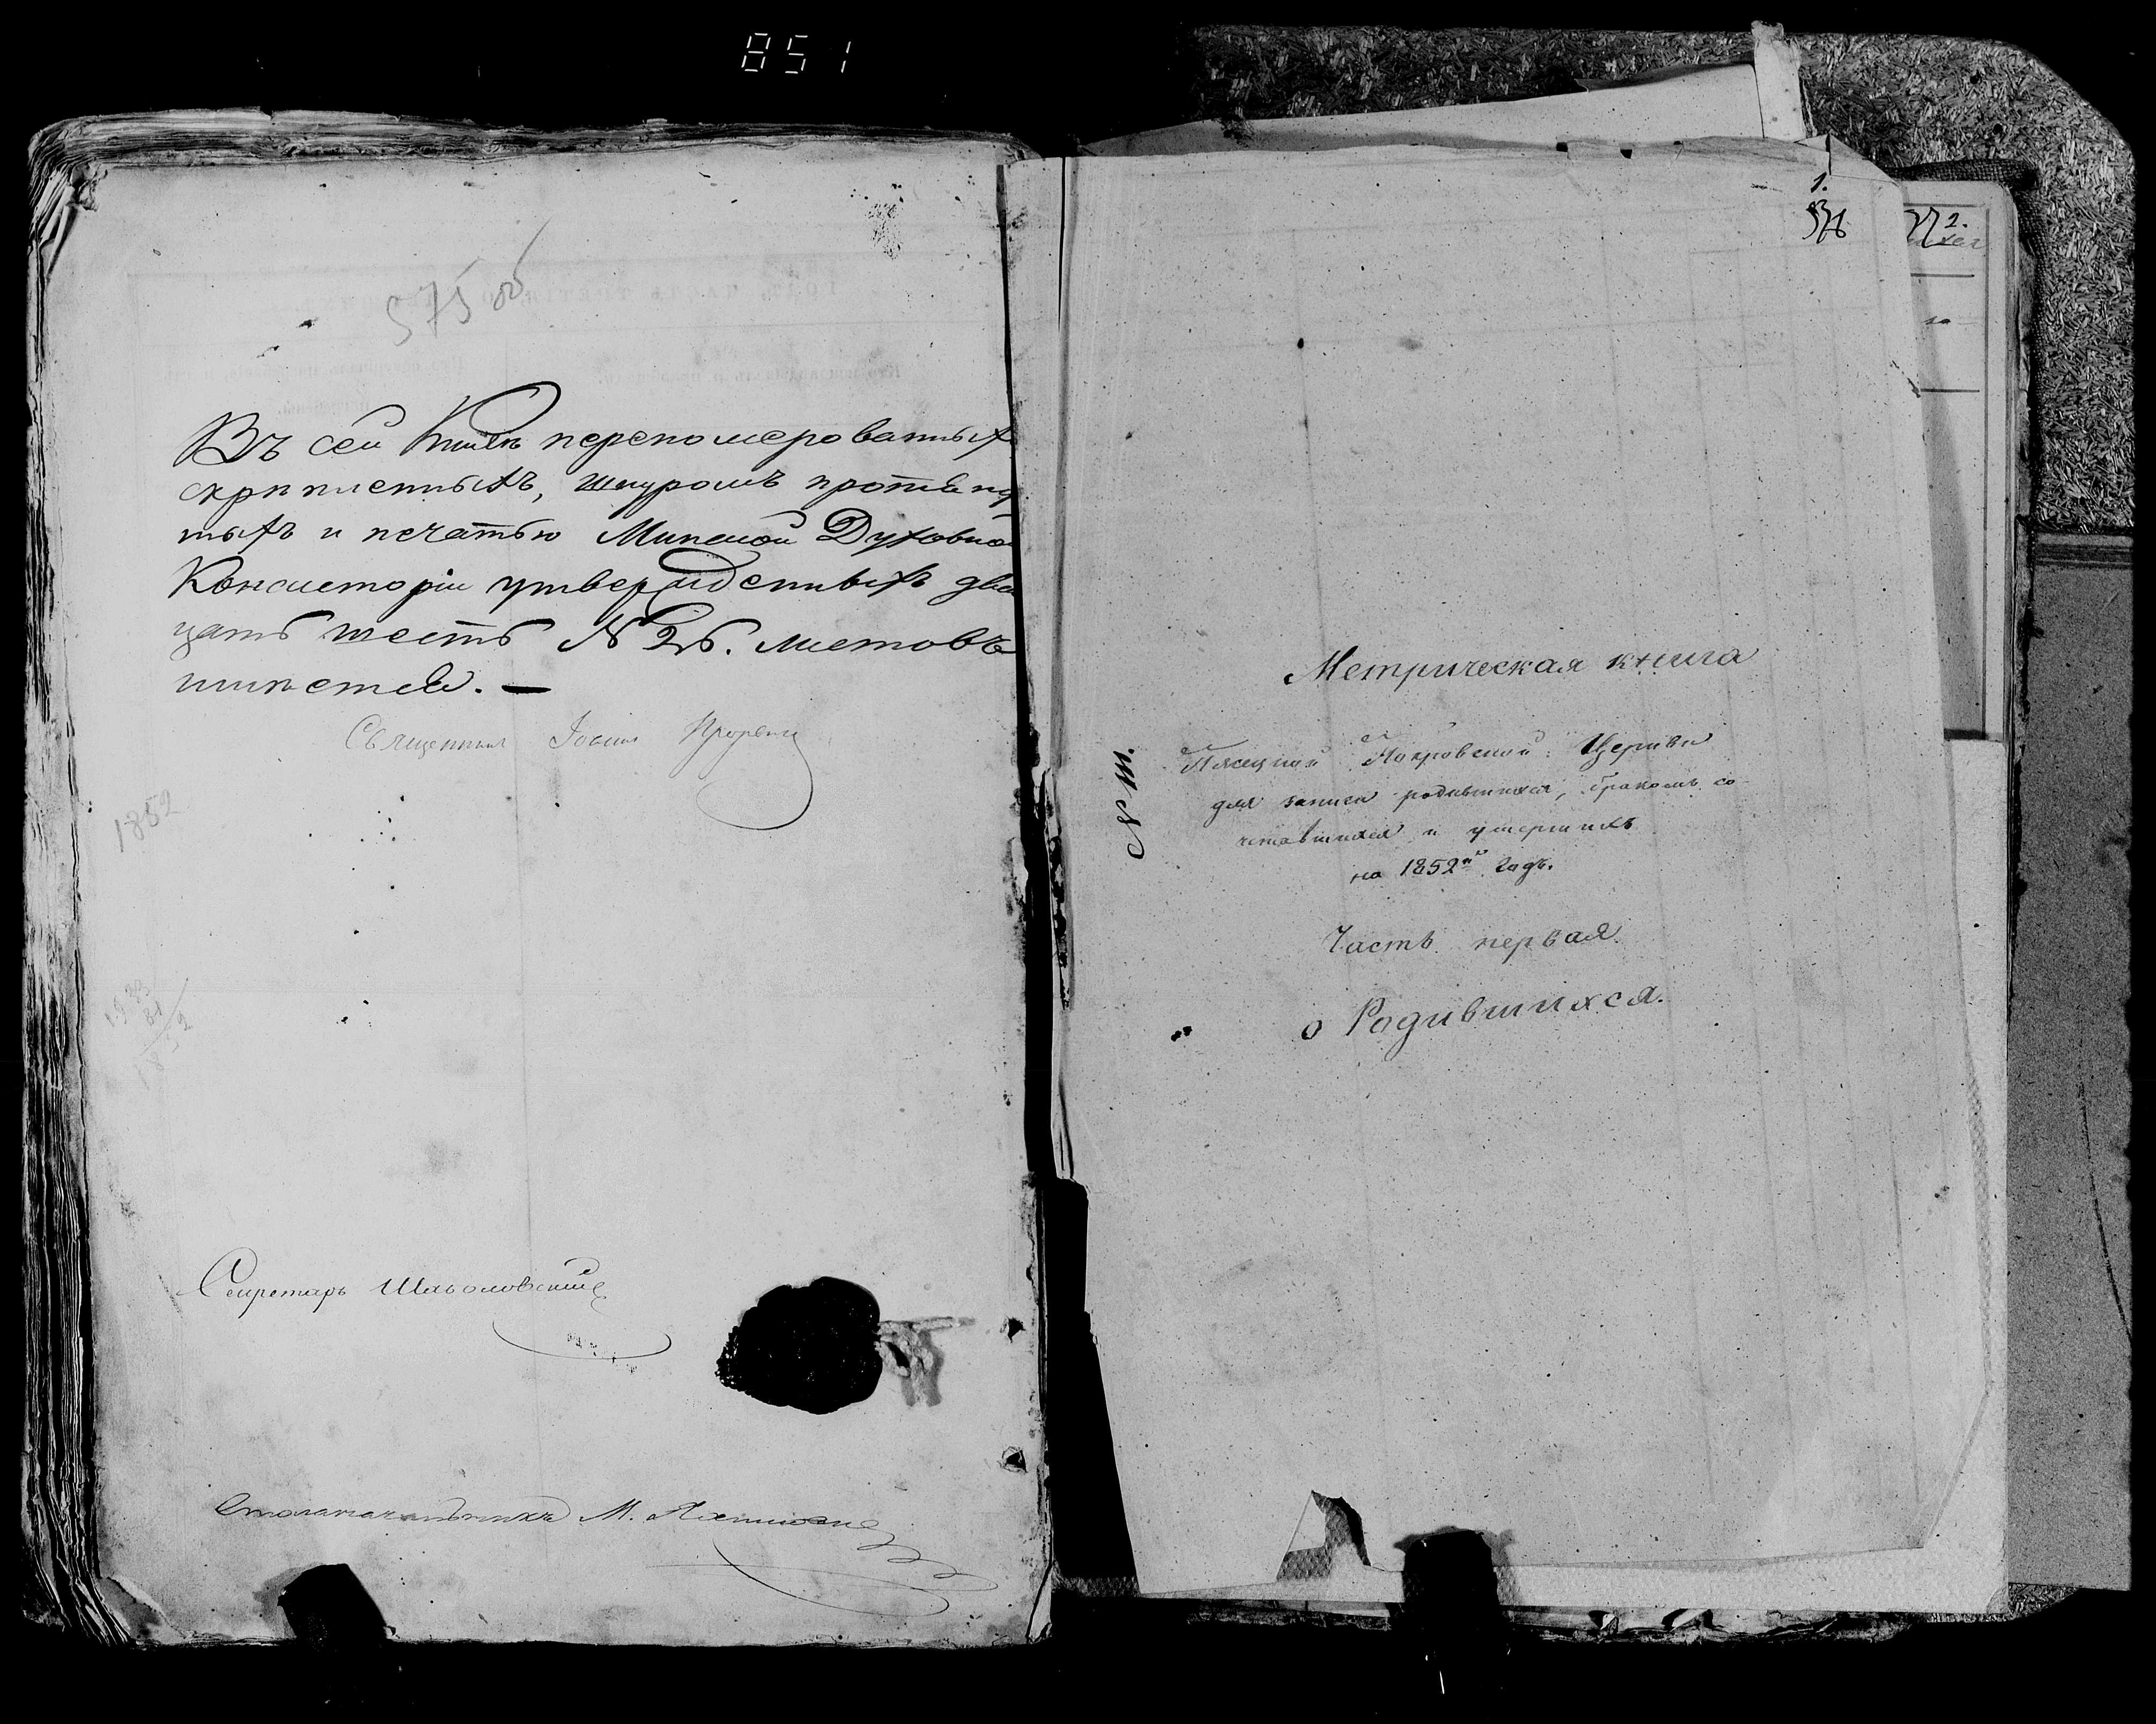 851
575 об
Въ сей Книгѣ перепомерованныхъ
скрѣпленныхъ, шнуромъ протяну
тыхъ и печатью Минской Духовной
Консисторіи утвержденныхъ двад
цать шесть № 26. листовъ
имѣется. —
Священник Іоанн
1852
1933
81
1852
Секретарь
Столоначальникъ М.
1.
576
2.
Метрическая книга
Покровской Церкви
для записи родившихся, бракомъ со-
четавшихся и умершихъ
на 1852й годъ.
Часть первая
о Родившихся.